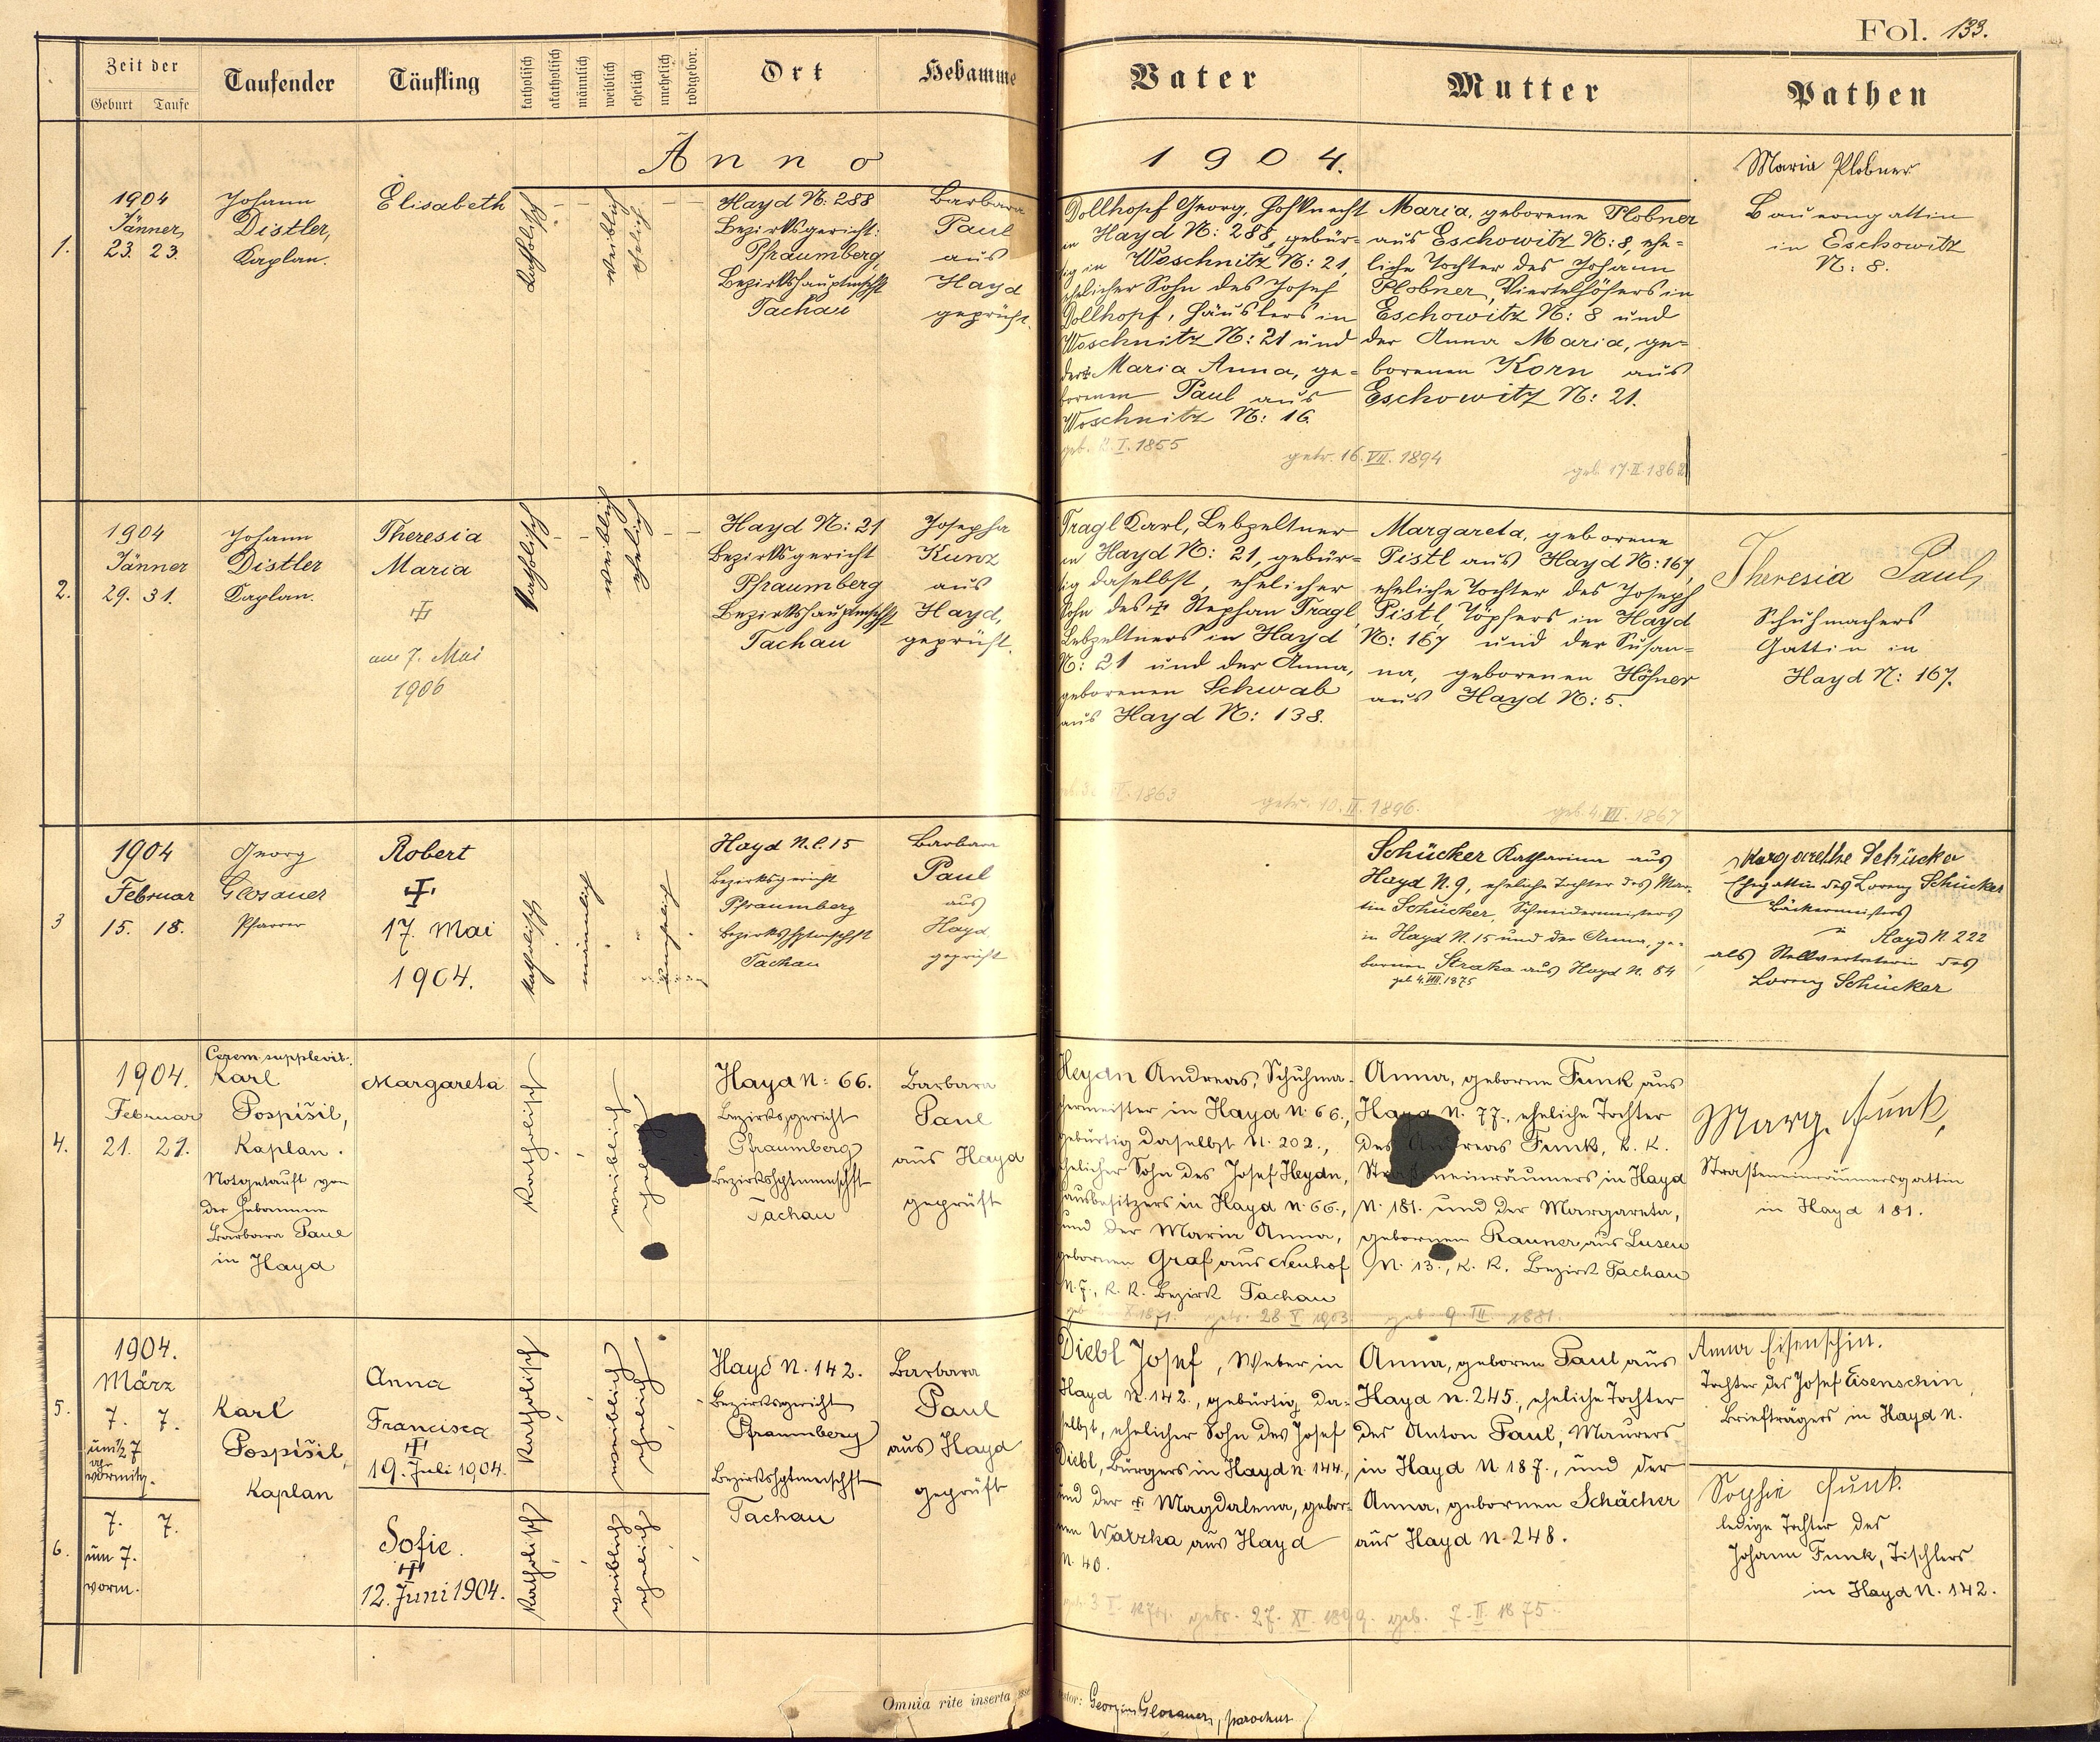 Fol. 133.
Zeit der
Geburt Taufe
Taufender
Täufling
katholisch
akatholisch
männlich
weiblich
ehelich
unehelich
todtgebor.
Ort
Hebamme
Vater
Mutter
Pathen
Anno 1904.
1.
1904
Jänner
23. 23.
Johann
Distler,
Kaplan.
Elisabeth
katholisch
weiblich
ehelich
Hayd N: 288
Bezirksgericht:
Pfraumberg,
Bezirkshauptmschft
Tachau
Barbara
Paul
aus
Hayd
geprüft.
Dollhopf Georg, Hofknecht
in Hayd N: 288, gebür-
tig in Woschnitz N: 21,
ehelicher Sohn des Josef
Dollhopf, Häuslers in
Woschnitz N: 21 und
der ✝ Maria Anna, ge-
borenen Paul aus
Woschnitz N: 16.
I. 1855
getr. 16. VII. 1894
Maria, geborene Plobner
aus Eschowitz N: 8, ehe-
liche Tochter des Johann
Plobner, Viertelhöfers in
Eschowitz N: 8 und
der Anna Maria, ge-
borenen Korn aus
Eschowitz N: 21.
geb. 17. II. 186
Maria Plobner
Bauersgattin
in Eschowitz
N: 8.
2.
1904
Jänner
29. 31.
Johann
Distler
Kaplan.
Theresia
Maria
✝
am 7. Mai
1906
katholisch
weiblich
ehelich
Hayd N: 21
Bezirksgericht
Pfraumberg
Bezirkshauptmschft
Tachau
Josepha
Kunz
aus
Hayd,
geprüft.
Tragl Karl, Lebzeltner
in Hayd N: 21, gebür-
tig daselbst, ehelicher
Sohn des ✝ Stephan Tragl,
Lebzeltners in Hayd
N: 21 und der Anna,
geborenen Schwab
aus Hayd N: 138.
1863
getr. 10. II. 1896.
Margareta, geborene
Pistl aus Hayd N: 167,
eheliche Tochter des Joseph
Pistl, Töpfers in Hayd
N: 167 und der Susan-
na, geborenen Höfner
aus Hayd N: 5.
geb. 4. VII. 1867
Theresia Paul,
Schuhmachers
Gattin in
Hayd N: 167.
3
1904
Februar
15. 18.
Georg
Glosauer
Pfarrer
Robert
✝
17. Mai
1904.
katholisch
männlich
unehelich
Hayd N.C. 15
Bezirksgericht
Pfraumberg
Bezirkshptmschft
Tachau
Barbara
Paul
aus
Hayd
geprüft
Schücker Katharina aus
Hayd N. 9, eheliche Tochter des Mar-
tin Schücker, Schneidermeisters
in Hayd N. 15 und der Anna, ge-
bornen Straka aus Hayd N. 84
geb 4. VIII. 1875
Margarethe Schücker
Ehegattin des Lorenz Schücker
Bäckermeisters
in Hayd N. 222
als Stellvertreterin des
Lorenz Schücker
4.
1904.
Februar
21. 21.
Cerem. supplevit.
Karl
Pospíšil,
Kaplan.
Notgetauft von
der Hebamme
Barbara Paul
in Hayd
Margareta
katholisch
weiblich
Hayd N: 66.
Bezirksgericht
Pfraumberg
Bezirkshptmmschft
Tachau
Barbara
Paul
aus Hayd
geprüft
Heydn Andreas, Schuhma-
chermeister in Hayd N. 66.,
gebürtig daselbst N. 202.,
ehelicher Sohn des Josef Heydn,
Hausbesitzers in Hayd N. 66.,
und der Maria Anna,
gebornen Graf aus Neuhof
N. 7., K. K. Bezirk Tachau
X. 1871. getr. 28. V. 1903.
Anna, geborne Funk aus
Hayd N. 77., eheliche Tochter
des Andreas Funk, k. k.
Straßeneinräumers in Hayd
N. 181. und der Margareta,
gebornen Rauner aus Lusen
N. 13., K. K. Bezirk Tachau
geb. 9. III. 1881.
Marg. Funk,
Straßeneinräumersgattin
in Hayd 181.
5.
1904.
März
7. 7.
um ½ 7
uhr
vormittg.
Karl
Pospíšil,
Kaplan
Anna
Francisca
✝
19. Juli 1904.
katholisch
weiblich
ehelich
Hayd N. 142.
Bezirksgericht
Pfraumberg
Bezirkshptmmschft
Tachau
Barbara
Paul
aus Hayd
geprüft
Diebl Josef, Weber in
Hayd N. 142., gebürtig da-
selbst, ehelicher Sohn des Josef
Diebl, Bürgers in Hayd N. 144.,
und der ✝ Magdalena, gebor-
nen Watzka aus Hayd
N. 40.
getr. 27. XI. 1899.
Anna, geborne Paul aus
Hayd N. 245., eheliche Tochter
des Anton Paul, Maurers
in Hayd N 187., und der
Anna, gebornen Schächer
aus Hayd N. 248.
geb. 7. II. 1875.
Anna Eisenschin.
Tochter des Josef Eisenschin,
Briefträgers in Hayd N.
6.
7. 7.
um 7.
vorm.
Sofie.
✝
12. Juni 1904.
katholisch
weiblich
ehelich
Sophie Funk
ledige Tochter des
Johann Funk, Tischlers
in Hayd N. 142.
Omnia rite inserta esse
testor: Georgius Glosauer, parochus